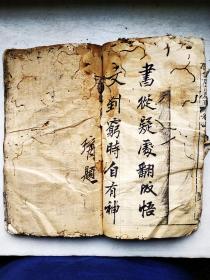 書從疑處翻成悟
文到窮時自有神
題